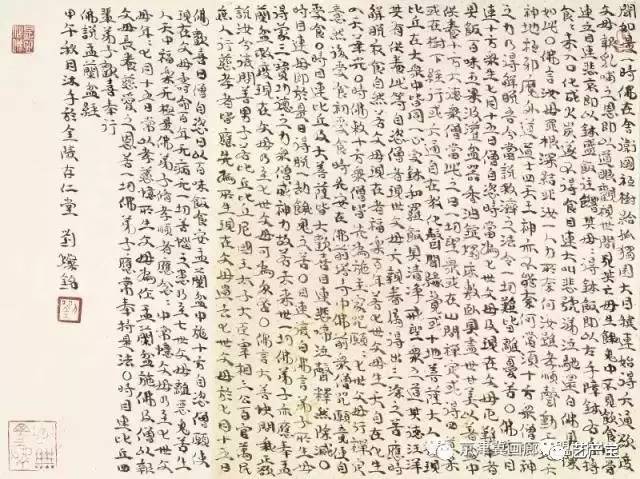 聞如是一時佛在舍衛國祇樹給孤獨園大目犍連始得六通欲度
父母報乳哺之恩即以道眼觀視世間見其亡母生餓鬼中不見飲食皮骨
連立目連悲哀即以鉢盛飯往餉其母母得鉢飯即以左手障鉢右手摶
食食未入口化成火炭遂不得食目連大叫悲號涕泣馳還白佛具陳
如此佛言汝母罪根深結非汝一人力所奈何汝雖孝順聲動天地天
神地祇邪魔外道道士四天王神亦不能奈何當須十方眾僧威神
之力乃得解脫吾今當說救濟之法令一切難皆離憂苦佛告目
連十方眾僧七月十五日僧自恣時當為七世父母及現在父母厄難中者
具飯百味五果汲灌盆器香油錠燭床敷臥具盡世甘美以著盆中
供養十方大德眾僧當此之日一切聖眾或在山間禪定或得四道果
或在樹下經行或六通自在教化聲聞緣覺或十地菩薩大人權現
比丘在大眾中皆同一心受鉢和羅飯具清淨戒聖眾之道其德汪洋
其有供養此等自恣僧者現世父母六親眷屬得出三塗之苦應時
解脫衣食自然若父母現在者福樂百年若七世父母生天自在化生
入天華光時佛敕十方眾僧皆先為施主家咒願七世父母行禪定
意然後受食初受食時先安在佛前塔寺中佛前眾僧咒願竟便自
受食時目連比丘及大菩薩眾皆大歡喜目連悲啼泣聲釋然除滅
時目連母即於是日得脫一劫餓鬼之苦目連復白佛言弟子所生母
得蒙三寶功德之力眾僧威神力故若未來世一切佛弟子亦應奉盂
蘭盆救度現在父母乃至七世父母可為爾否佛言大善快問我正欲
說汝今復問善男子若比丘比丘尼國王太子大臣宰相三公百官萬民
庶人行慈孝者皆應先為所生現在父母過去七世父母於七月十五日
佛歡喜日僧自恣日以百味飯食安盂蘭盆中施十方自恣僧願使
現在父母壽命百年無病無一切苦惱之患乃至七世父母離惡鬼苦生
人天中福樂無極是佛弟子修孝順者應念念中常憶父母乃至七世
父母年年七月十五日常以孝慈憶所生父母為作盂蘭盆施佛及僧以報
父母長養慈愛之恩若一切佛弟子應常奉持是法時目連比丘四
輩弟子歡喜奉行
佛說盂蘭盆經
甲午秋月沐手於金陵存仁堂 劉燦銘
劉
京津冀画廊
艺产宝